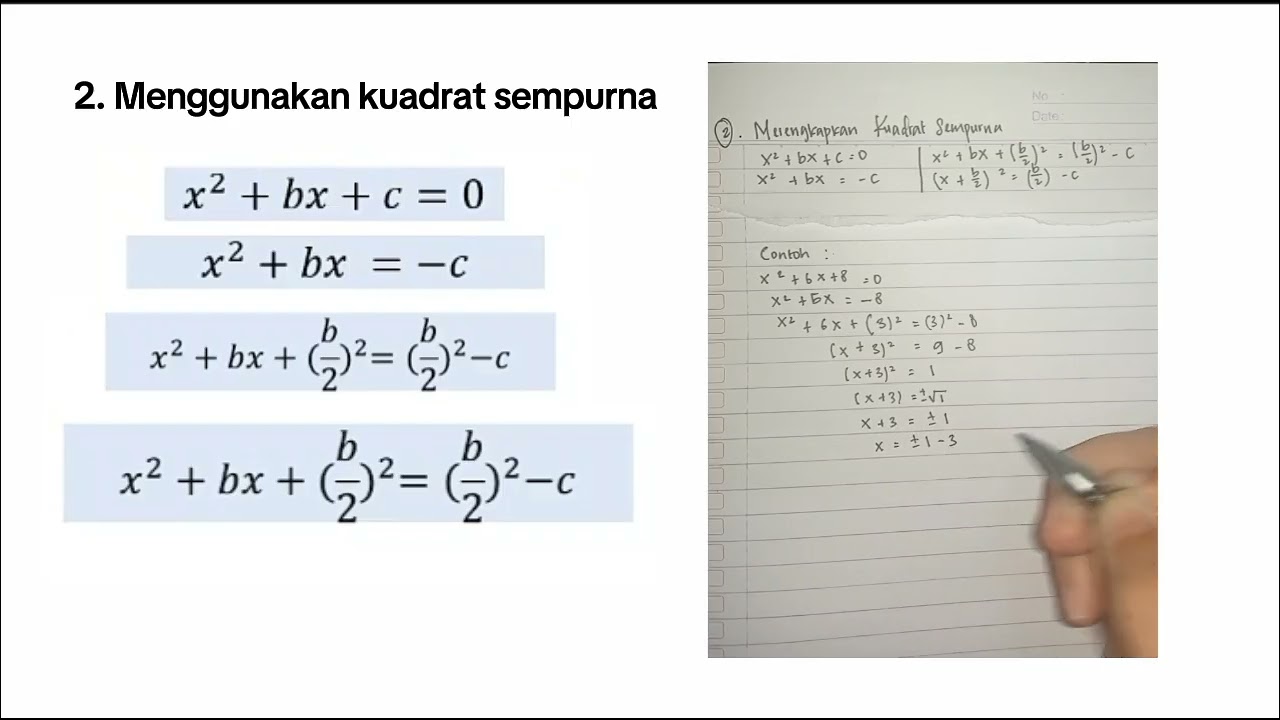 2. Menggunakan kuadrat sempurna
x² + bx + c = 0
x² + bx = −c
x² + bx + (b/2)²= (b/2)²−c
x² + bx + (b/2)²= (b/2)²−c
No :
Date:
2. Melengkapkan Kuadrat Sempurna
x² + bx + c = 0
x² + bx = -c
x² + bx + (b/2)² = (b/2)² - c
(x + b/2)² = (b/2) - c
Contoh :
x² + 6x + 8 = 0
x² + 6x = -8
x² + 6x + (3)² = (3)² - 8
(x + 3)² = 9 - 8
(x+3)² = 1
(x+3) = ±√1
x + 3 = ± 1
x = ± 1 - 3